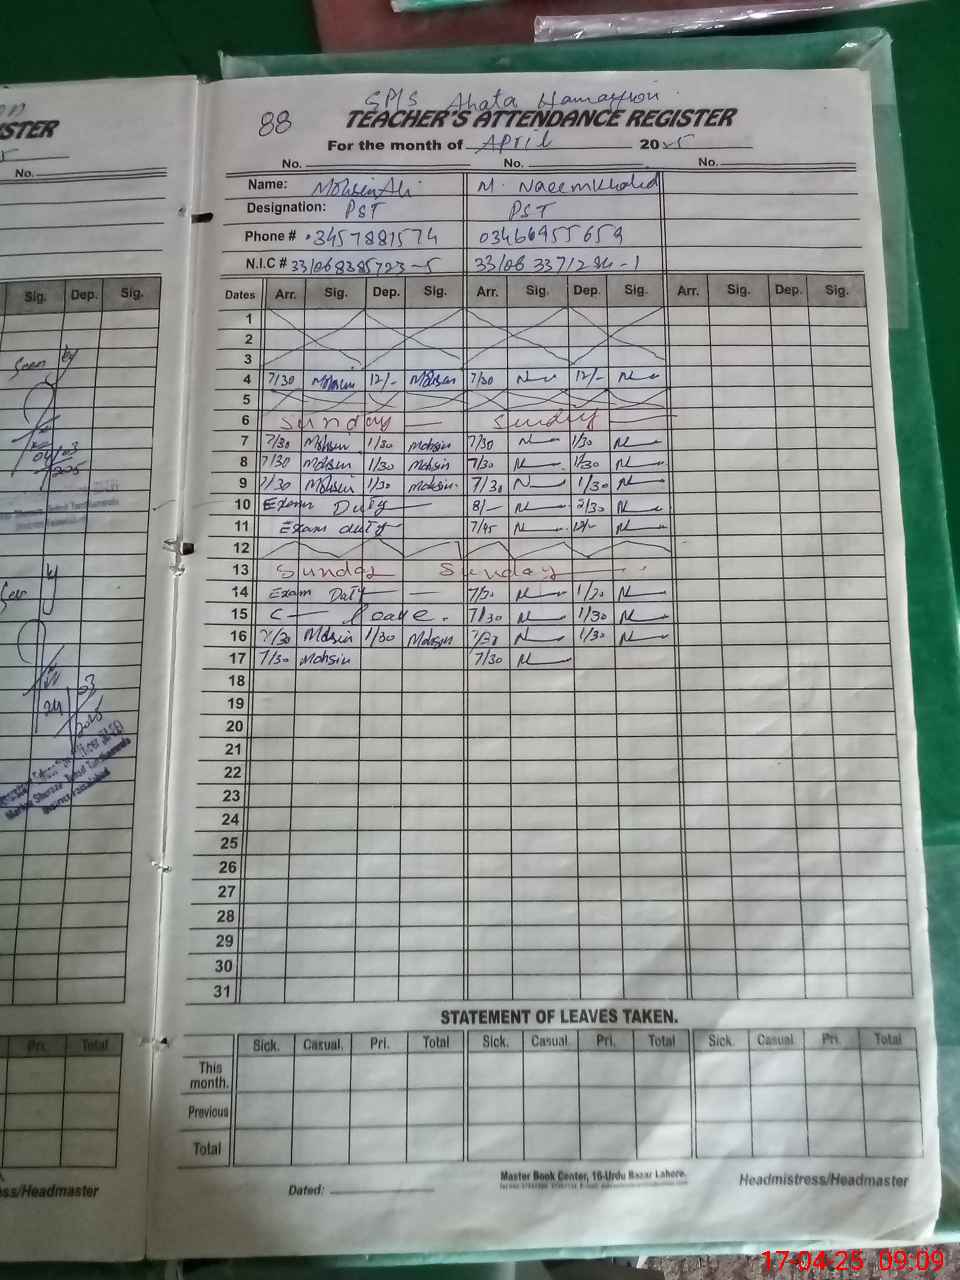 88
GPS Ahata
TEACHER'S ATTENDANCE REGISTER
For the month of April 2025
No. No. No.
Name: Mohsin Ali M. Naeem Khalid
Designation: PST PST
Phone # 03457881574 03466955659
N.I.C #
Dates Arr. Sig. Dep. Sig. Arr. Sig. Dep. Sig. Arr. Sig. Dep. Sig.
1
2
3
4 7/30 Mohsin 12/- Mohsin 7/30 12/-
5
6 Sunday Sunday
7 7/30 Mohsin 1/30 Mohsin 7/30 1/30
8 7/30 Mohsin 1/30 Mohsin 7/30 1/30
9 7/30 Mohsin 1/30 Mohsin 7/30 1/30
10 Exam Duty 8/- 2/30
11 Exam duty 7/45 12/-
12
13 Sunday Sunday
14 Exam Duty
15 C- Leave. 7/30 1/30
16 7/30 Mohsin 1/30 Mohsin 7/30 1/30
17 7/30 Mohsin 7/30
18
19
20
21
22
23
24
25
26
27
28
29
30
31
STATEMENT OF LEAVES TAKEN.
Sick. Casual. Pri. Total Sick. Casual. Pri. Total Sick. Casual Pri. Total
This month.
Previous
Total
Dated:
Master Book Center, 16-Urdu Bazar Lahore.
Headmistress/Headmaster
ISTER
No.
Sig. Dep. Sig.
Seen by
04/03
Seen by
24/03
Pri. Total
ess/Headmaster
17-04-25 09:09